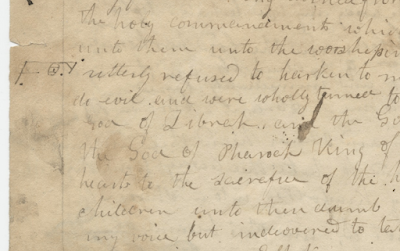 the holy commandments which
unto them unto the worshiping
utterly refused to harken to m
do evil and were wholly turned to
god of Libnah, and the Go
the God of Pharaoh King of
hearts to the sacrifice of the h
children unto their dumb
my voice but indeavored to ta